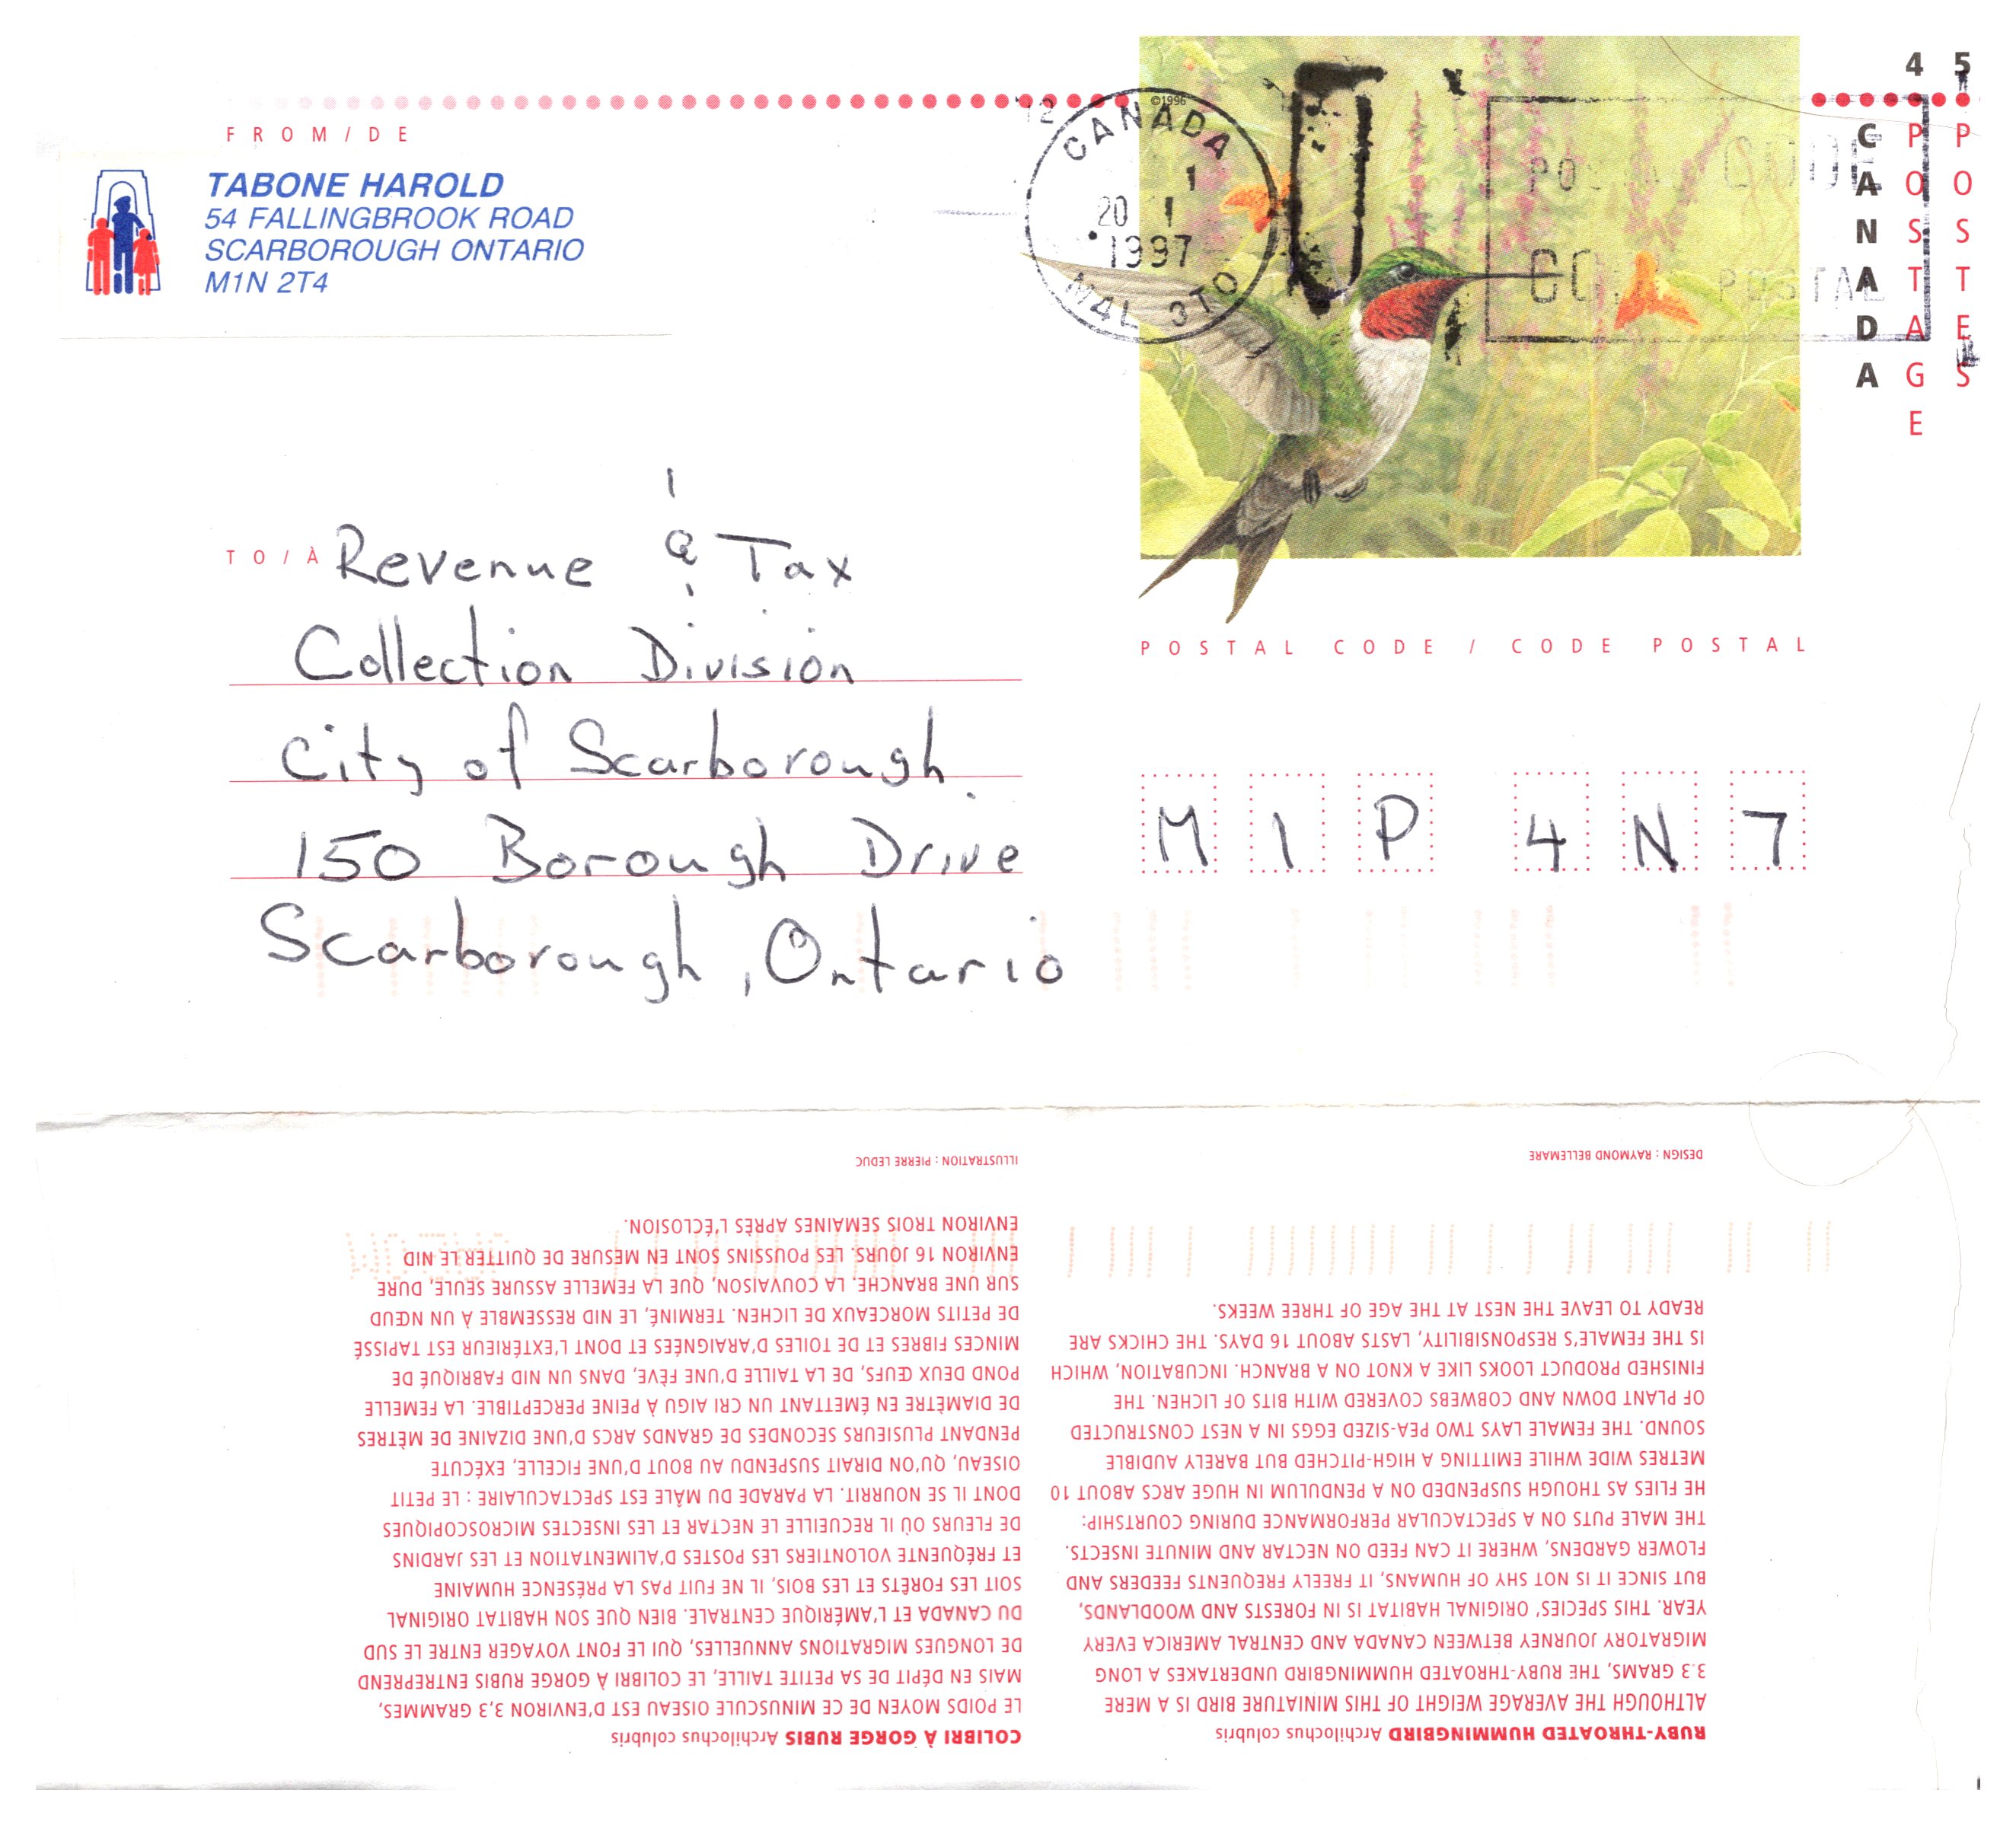 4 5
©1996
FROM/DE
TABONE HAROLD
54 FALLINGBROOK ROAD
SCARBOROUGH ONTARIO
M1N 2T4
12
CANADA
1
20 I
1997
M4L 3T0
POSTAL CODE
CODE POSTAL
CANADA
POSTAGE
POSTES
TO/À Revenue & Tax
Collection Division
City of Scarborough
150 Borough Drive
Scarborough, Ontario
POSTAL CODE / CODE POSTAL
M 1 P 4 N 7
RUBY-THROATED HUMMINGBIRD Archilochus colubris
ALTHOUGH THE AVERAGE WEIGHT OF THIS MINIATURE BIRD IS A MERE
3.3 GRAMS, THE RUBY-THROATED HUMMINGBIRD UNDERTAKES A LONG
MIGRATORY JOURNEY BETWEEN CANADA AND CENTRAL AMERICA EVERY
YEAR. THIS SPECIES' ORIGINAL HABITAT IS IN FORESTS AND WOODLANDS,
BUT SINCE IT IS NOT SHY OF HUMANS, IT FREELY FREQUENTS FEEDERS AND
FLOWER GARDENS, WHERE IT CAN FEED ON NECTAR AND MINUTE INSECTS.
THE MALE PUTS ON A SPECTACULAR PERFORMANCE DURING COURTSHIP:
HE FLIES AS THOUGH SUSPENDED ON A PENDULUM IN HUGE ARCS ABOUT 10
METRES WIDE WHILE EMITTING A HIGH-PITCHED BUT BARELY AUDIBLE
SOUND. THE FEMALE LAYS TWO PEA-SIZED EGGS IN A NEST CONSTRUCTED
OF PLANT DOWN AND COBWEBS COVERED WITH BITS OF LICHEN. THE
FINISHED PRODUCT LOOKS LIKE A KNOT ON A BRANCH. INCUBATION, WHICH
IS THE FEMALE'S RESPONSIBILITY, LASTS ABOUT 16 DAYS. THE CHICKS ARE
READY TO LEAVE THE NEST AT THE AGE OF THREE WEEKS.
DESIGN : RAYMOND BELLEMARE
COLIBRI À GORGE RUBIS Archilochus colubris
LE POIDS MOYEN DE CE MINUSCULE OISEAU EST D'ENVIRON 3,3 GRAMMES,
MAIS EN DÉPIT DE SA PETITE TAILLE, LE COLIBRI À GORGE RUBIS ENTREPREND
DE LONGUES MIGRATIONS ANNUELLES, QUI LE FONT VOYAGER ENTRE LE SUD
DU CANADA ET L'AMÉRIQUE CENTRALE. BIEN QUE SON HABITAT ORIGINAL
SOIT LES FORÊTS ET LES BOIS, IL NE FUIT PAS LA PRÉSENCE HUMAINE
ET FRÉQUENTE VOLONTIERS LES POSTES D'ALIMENTATION ET LES JARDINS
DE FLEURS OÙ IL RECUEILLE LE NECTAR ET LES INSECTES MICROSCOPIQUES
DONT IL SE NOURRIT. LA PARADE DU MÂLE EST SPECTACULAIRE : LE PETIT
OISEAU, QU'ON DIRAIT SUSPENDU AU BOUT D'UNE FICELLE, EXÉCUTE
PENDANT PLUSIEURS SECONDES DE GRANDS ARCS D'UNE DIZAINE DE MÈTRES
DE DIAMÈTRE EN ÉMETTANT UN CRI AIGU À PEINE PERCEPTIBLE. LA FEMELLE
POND DEUX ŒUFS, DE LA TAILLE D'UNE FÈVE, DANS UN NID FABRIQUÉ DE
MINCES FIBRES ET DE TOILES D'ARAIGNÉES ET DONT L'EXTÉRIEUR EST TAPISSÉ
DE PETITS MORCEAUX DE LICHEN. TERMINÉ, LE NID RESSEMBLE À UN NŒUD
SUR UNE BRANCHE. LA COUVAISON, QUE LA FEMELLE ASSURE SEULE, DURE
ENVIRON 16 JOURS. LES POUSSINS SONT EN MESURE DE QUITTER LE NID
ENVIRON TROIS SEMAINES APRÈS L'ÉCLOSION.
ILLUSTRATION : PIERRE LEDUC